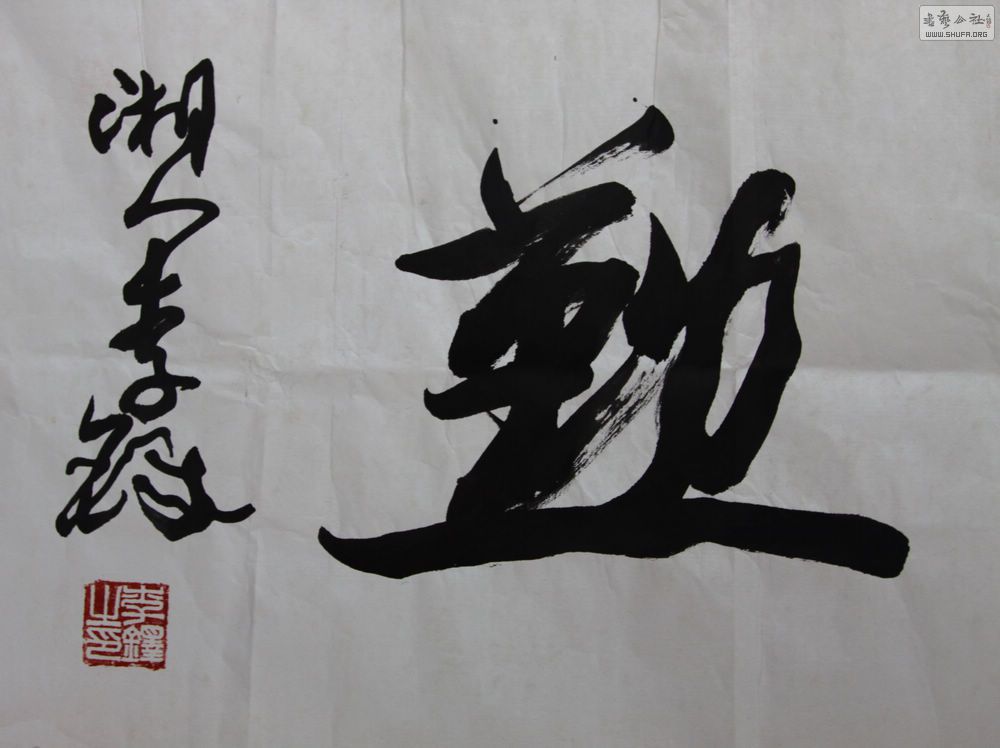 勲
湘人李鐸
李鐸之印
書藝公社
WWW.SHUFA.ORG